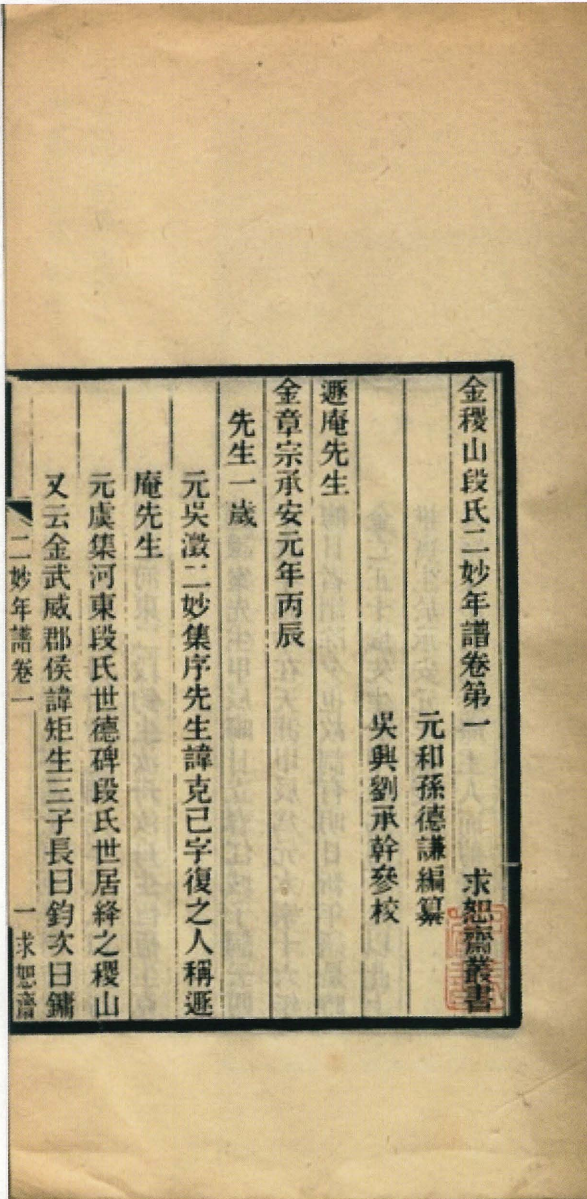 金稷山段氏二妙年譜卷第一　求恕齋叢書
元和孫德謙編纂
吳興劉承幹參校
遯庵先生
金章宗承安元年丙辰
先生一歲
元吳澂二妙集序先生諱克己字復之人稱遯
庵先生
元虞集河東段氏世德碑段氏世居絳之稷山
又云金武威郡侯諱矩生三子長曰鈞次曰鏞
二妙年譜卷一　一　求恕齋